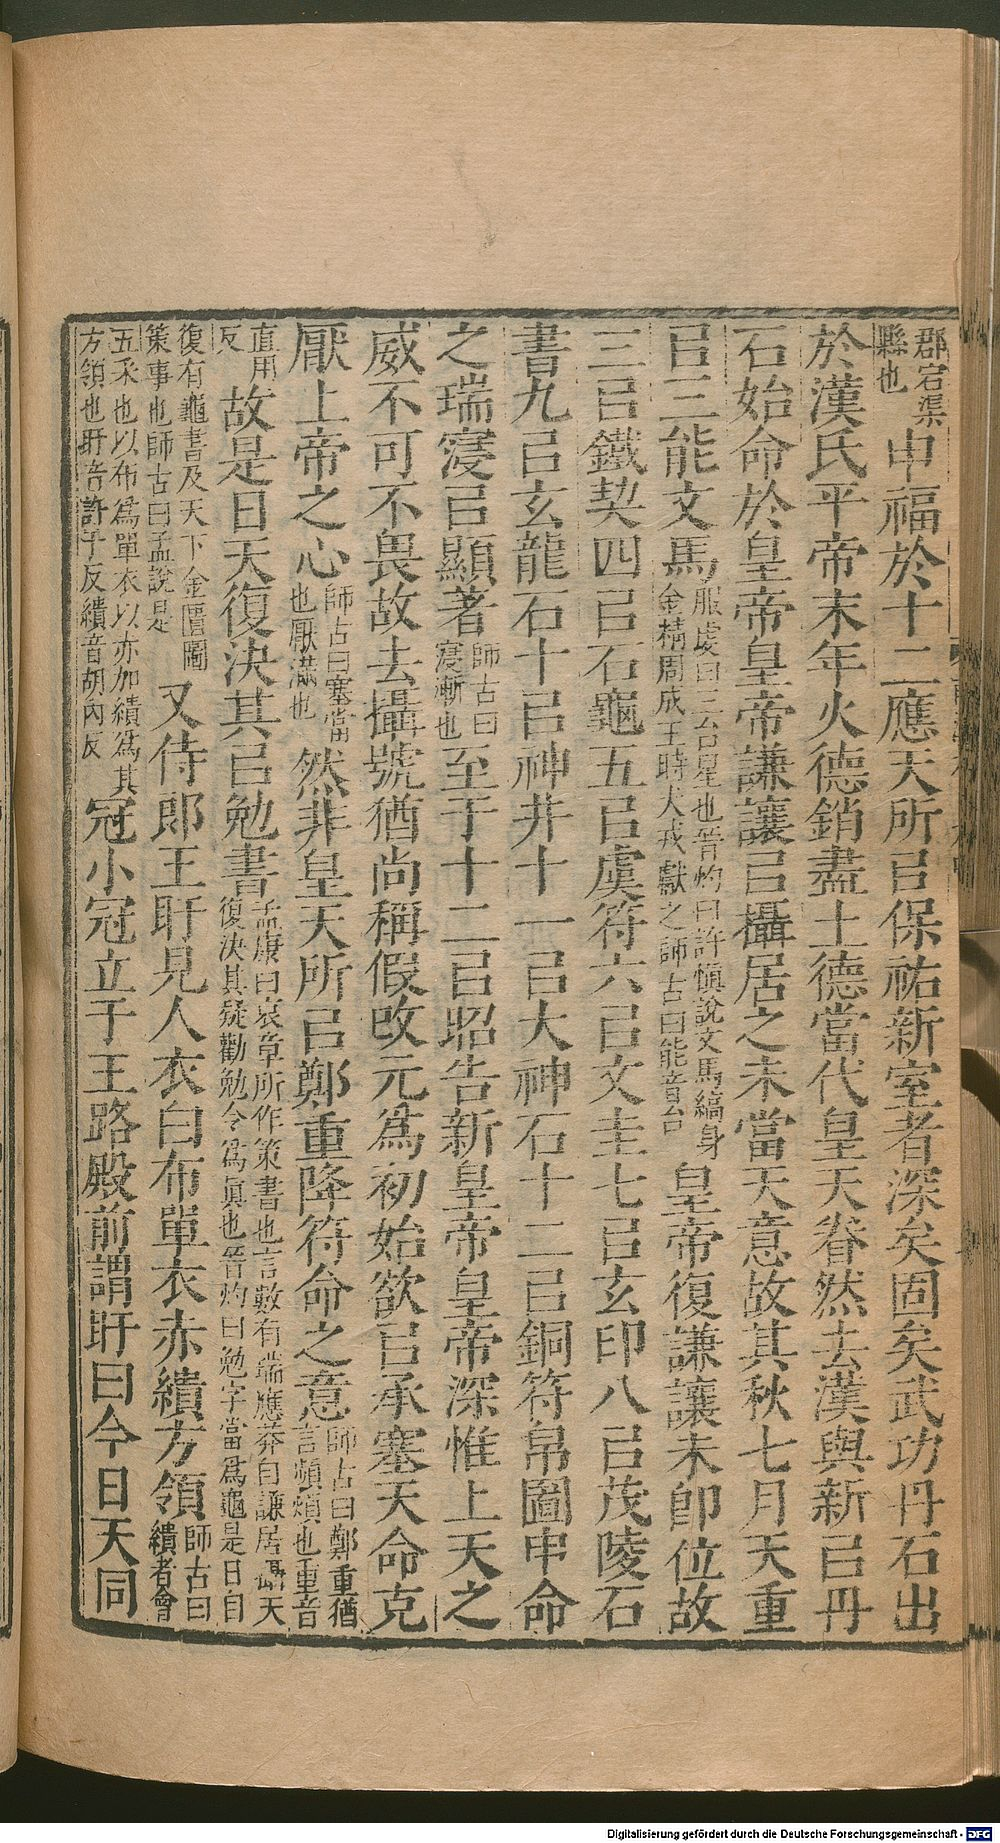 郡宕渠縣也申福於十二應天所㠯保祐新室者深矣固矣武功丹石出
於漢氏平帝末年火德銷盡土德當代皇天眷然去漢與新㠯丹
石始命於皇帝皇帝謙讓㠯攝居之未當天意故其秋七月天重
㠯三能文馬服虔曰三台星也晉灼曰許慎說文馬縞身金精周成王時犬戎獻之師古曰能音台皇帝復謙讓未卽位故
三㠯鐵契四㠯石龜五㠯虞符六㠯文圭七㠯玄印八㠯茂陵石
書九㠯玄龍石十㠯神井十一㠯大神石十二㠯銅符帛圖申命
之瑞寖㠯顯著師古曰寖漸也至于十二㠯昭告新皇帝皇帝深惟上天之
威不可不畏故去攝號猶尚稱假改元爲初始欲㠯承塞天命克
厭上帝之心師古曰塞當也厭滿也然非皇天所㠯鄭重降符命之意師古曰鄭重猶言頻煩也重音
直用反故是日天復決其㠯勉書孟康曰哀章所作策書也言數有端應莽自謙居攝天復決其疑勸勉令爲眞也晉灼曰勉字當爲龜是日自
復有龜書及天下金匱圖策事也師古曰孟說是又侍郎王盱見人衣白布單衣赤繢方領師古曰繢者會
五采也以布爲單衣以赤加繢爲其方領也盱音許于反繢音胡內反冠小冠立于王路殿前謂盱曰今日天同
Digitalisierung gefördert durch die Deutsche Forschungsgemeinschaft - DFG